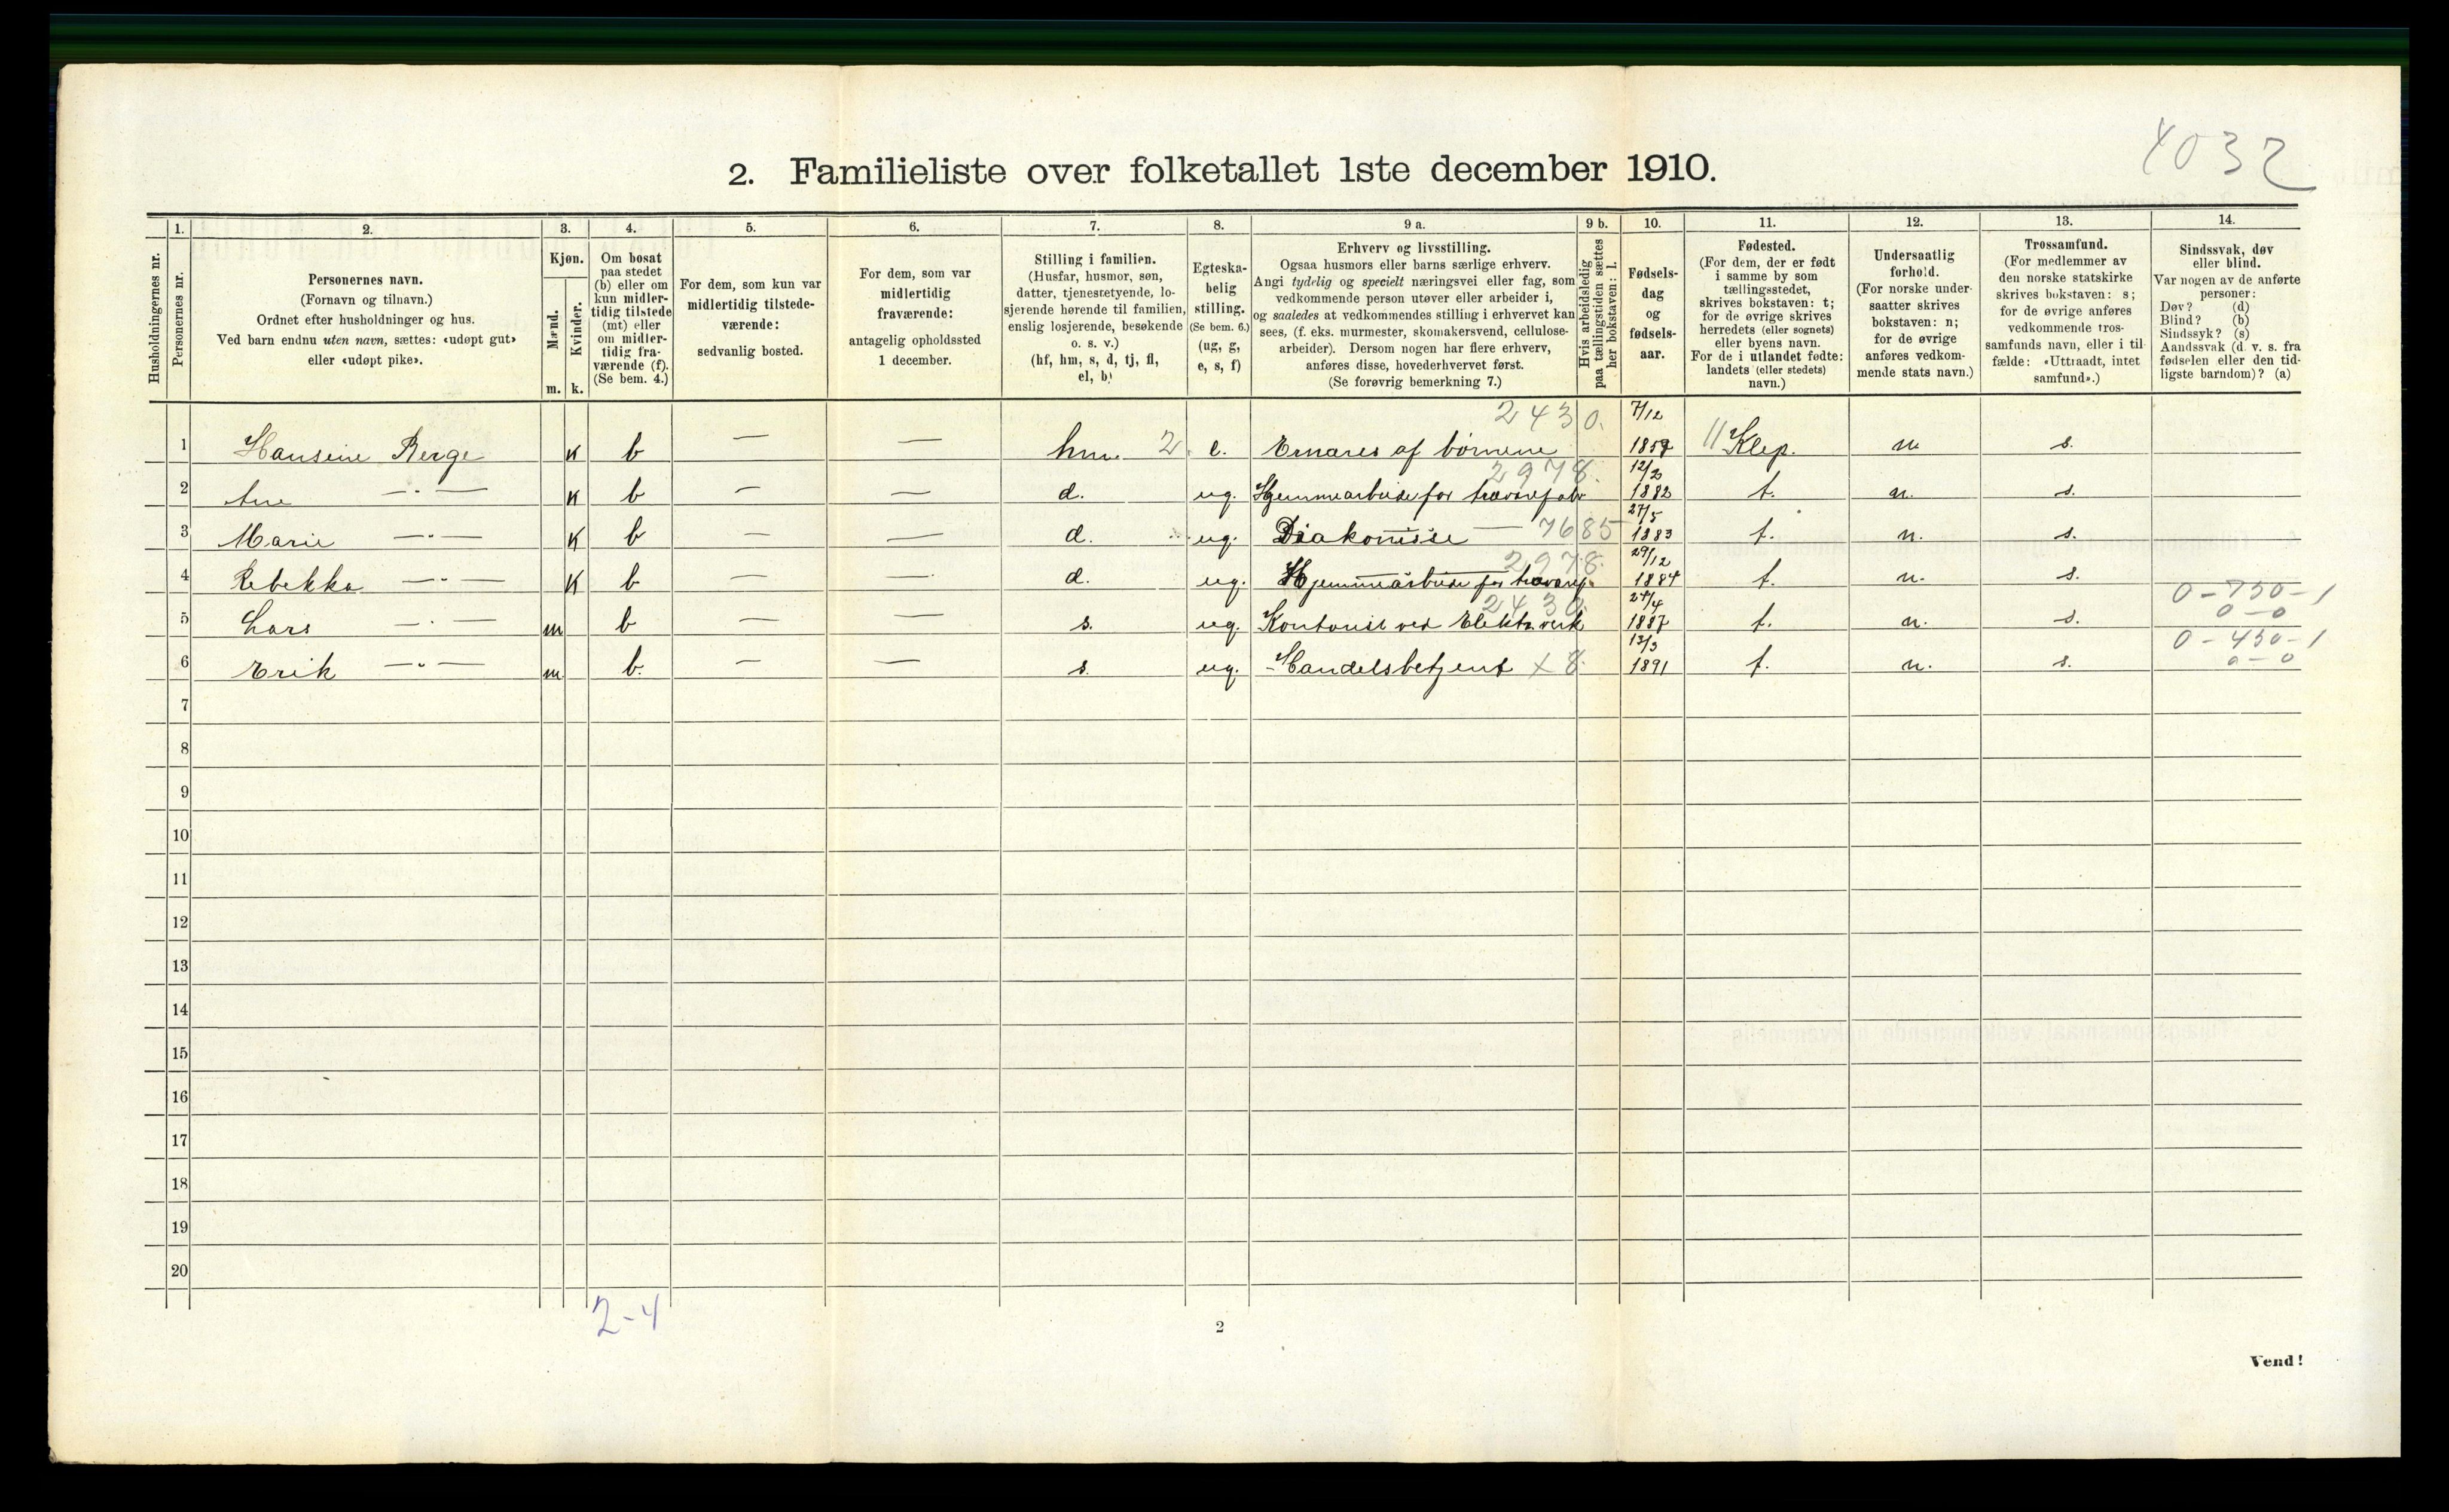 4032
2. Familieliste over folketallet 1ste december 1910.
Husholdningernes nr.
1.
Personernes nr.
2.
Personernes navn.
(Fornavn og tilnavn.)
Ordnet efter husholdninger og hus.
Ved barn endnu uten navn, sættes: «udøpt gut»
eller «udøpt pike».
3.
Kjøn.
Mænd.
Kvinder.
m. k.
4.
Om bosat
paa stedet
(b) eller om
kun midler-
tidig tilstede
(mt) eller
om midler-
tidig fra-
værende (f).
(Se bem. 4.)
5.
For dem, som kun var
midlertidig tilstede-
værende:
sedvanlig bosted.
6.
For dem, som var
midlertidig
fraværende:
antagelig opholdssted
1 december.
7.
Stilling i familien.
(Husfar, husmor, søn,
datter, tjenestetyende, lo-
sjerende hørende til familien,
enslig losjerende, besøkende
o. s. v.)
(hf, hm, s, d, tj, fl,
el, b)
8.
Egteska-
belig
stilling.
(Se bem. 6.)
(ug, g,
e, s, f)
9 a.
Erhverv og livsstilling.
Ogsaa husmors eller barns særlige erhverv.
Angi tydelig og specielt næringsvei eller fag, som
vedkommende person utøver eller arbeider i,
og saaledes at vedkommendes stilling i erhvervet kan
sees, (f. eks. murmester, skomakersvend, cellulose-
arbeider). Dersom nogen har flere erhverv,
anføres disse, hovederhvervet først.
(Se forøvrig bemerkning 7.)
9 b.
Hvis arbeidsledig
paa tællingstiden sættes
her bokstaven: l.
10.
Fødsels-
dag
og
fødsels-
aar.
11.
Fødested.
(For dem, der er født
i samme by som
tællingsstedet,
skrives bokstaven: t;
for de øvrige skrives
herredets (eller sognets)
eller byens navn.
For de i utlandet fødte:
landets (eller stedets)
navn.)
12.
Undersaatlig
forhold.
(For norske under-
saatter skrives
bokstaven: n;
for de øvrige
anføres vedkom-
mende stats navn.)
13.
Trossamfund.
(For medlemmer av
den norske statskirke
skrives bokstaven: s;
for de øvrige anføres
vedkommende tros-
samfunds navn, eller i til-
fælde: «Uttraadt, intet
samfund».)
14.
Sindssvak, døv
eller blind.
Var nogen av de anførte
personer:
Døv? (d)
Blind? (b)
Sindssyk? (s)
Aandssvak (d. v. s. fra
fødselen eller den tid-
ligste barndom)? (a)
2430. 7/12
1 Hansine Berge k b — — hm. 2 e. Ernæres af børnene 11 Klep. n s.
2978. 12/2
2 Ane —"— k b — — d. ug. Hjemmearbeide for 1882 t. n. s.
27/5
3 Marie —"— k b — — d. ug. Diakonisse — 7685 1883 t. n. s.
2978. 29/12
4 Rebekka —"— k b — — d. ug. Hjemmearbeide for 1884 t. n. s.
2430. 24/4 0-750-1
5 Lars —"— m b — — s. ug. Kontorist ved Elektr. verk 1887 t. n. s. 0-0
13/3 0-450-1
6 Erik —"— m b. — — s. ug. Handelsbetjent x 8. 1891 t. n. s. 0-0
7
8
9
10
11
12
13
14
15
16
17
18
19
20
2-4
2
Vend!